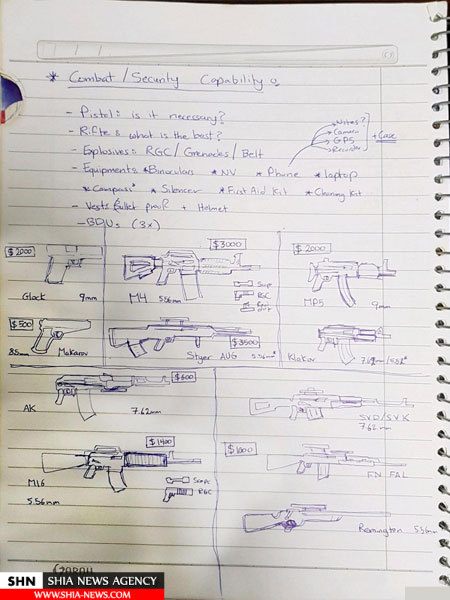 * Combat/Security Capability
- Pistol: is it necessary?
- Rifle: what is the best?
- Explosives: RGC / Grenades / Belt
Notes?
Camera
GPS
Recorder
+ Case
- Equipments: * Binoculars * NV * Phone * laptop
* Compass * Silencer * First Aid Kit * Cleaning Kit
- Vest: Bullet proof + Helmet
- BDU: (3x)
$2000
Glock 9mm
$3000
M4 5.56mm
RGC
$2000
MP5 9mm
$500
85mm Makarov
$3500
Styer AUG 5.56mm
Klakov
$600
AK 7.62mm
SVD/SVK
7.62mm
$1400
M16
5.56mm
Scope
RGC
$1000
FN FAL
Remington 5.56mm
SHN SHIA NEWS AGENCY
WWW.SHIA-NEWS.COM